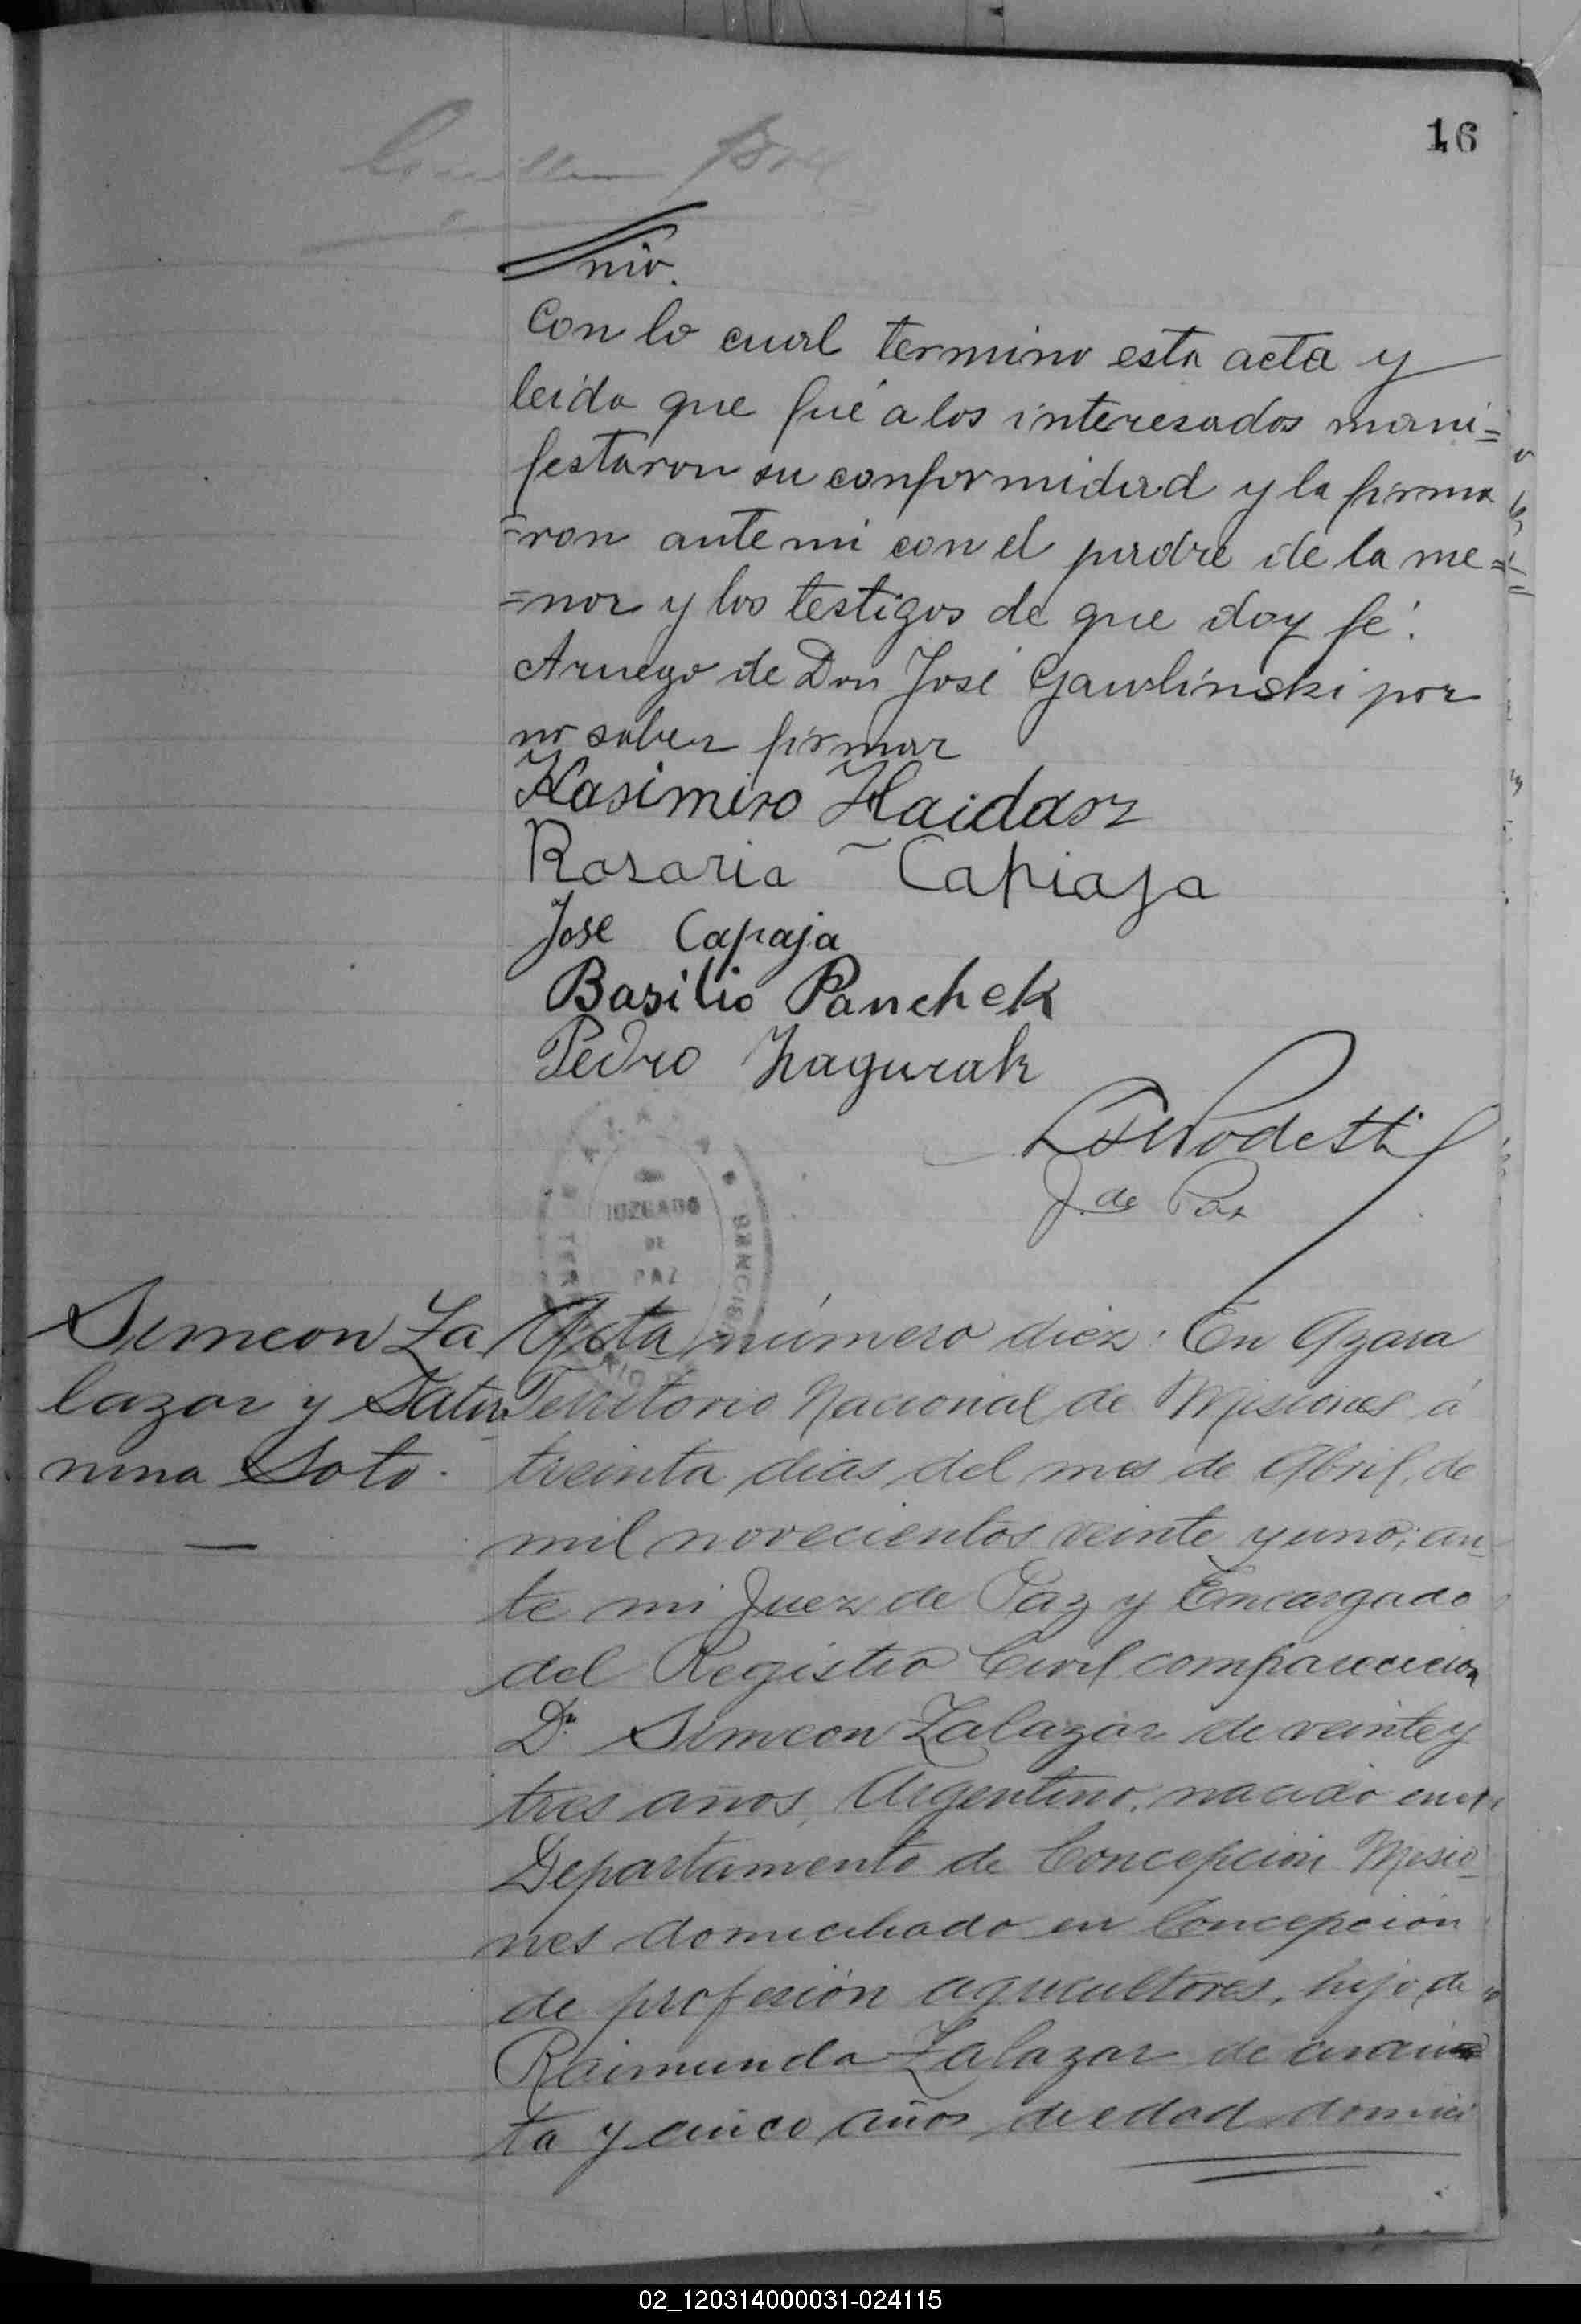 16
nio.
Con lo cual termino esta acta y
leida que fué a los interesados mani=
festaron su conformidad y la firma
=ron ante mi con el padre de la me=
=nor y los testigos de que doy fé.
Aruego de Don José Gawlinski por
no saber firmar
Kasimiro Haidasz
Rosaria Capiaja
Jose Capaja
Basilio Panchek
Pedro Zagurak
J. de Paz
JUZGADO
DE
PAZ
Simeon Za
lazar y Satur
nina Soto.
Acta número diez: En Azara
Territorio Nacional de Misiones á
treinta dias del mes de Abril, de
mil novecientos veinte y uno; an-
te mi Juez de Paz y Encargado
del Registro Civil comparecieron
Dn. Simeon Zalazar de veinte y
tres años, Argentino, nacido en el
Departamento de Concepción Misio-
nes domiciliado en Concepción
de profesión agricultores, hijo de
Raimunda Zalazar de cuaren=
ta y cinco años de edad domici
02_120314000031-024115